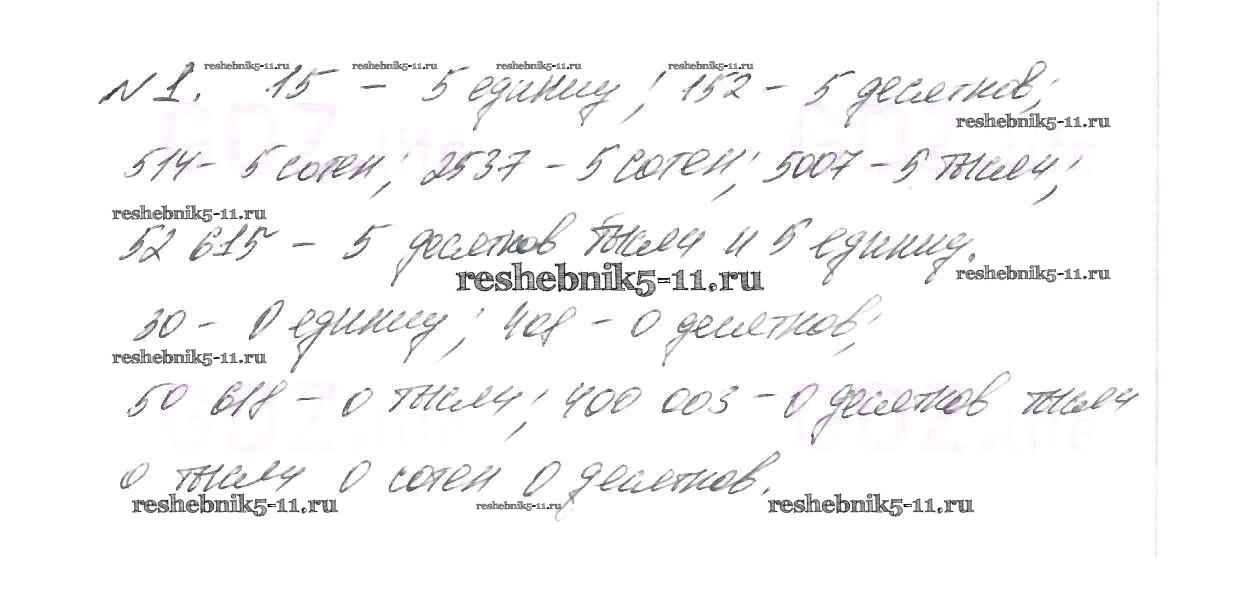 reshebnik5-11.ru reshebnik5-11.ru reshebnik5-11.ru reshebnik5-11.ru
№1. 15 - 5 единиц; 152 - 5 десятков;
reshebnik5-11.ru
514 - 5 сотен; 2537 - 5 сотен; 5007 - 5 тысяч;
reshebnik5-11.ru
52 615 - 5 десятков тысяч и 5 единиц.
reshebnik5-11.ru reshebnik5-11.ru
30 - 0 единиц; 408 - 0 десятков;
reshebnik5-11.ru
50 618 - 0 тысяч; 400 003 - 0 десятков тысяч
0 тысяч 0 сотен 0 десятков.
reshebnik5-11.ru reshebnik5-11.ru reshebnik5-11.ru